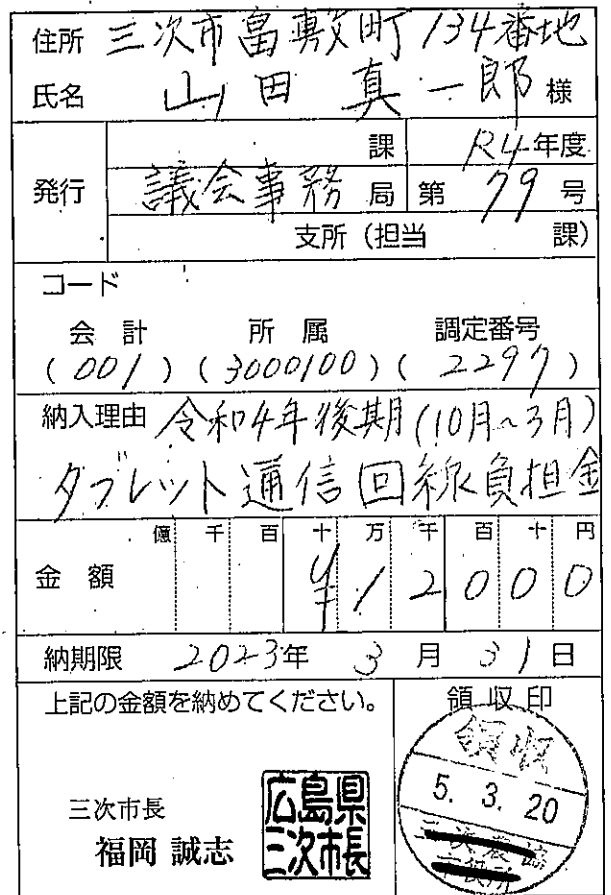 住所 三次市畠敷町134番地
氏名 山田 真一郎 様
課 R4年度
発行 議会事務局 第 79 号
支所（担当 課）
コード
会計 所属 調定番号
(001) (3000100) (2297)
納入理由 令和4年後期(10月~3月)
タブレット通信回線負担金
億 千 百 十 万 千 百 十 円
金額 ¥12000
納期限 2023年 3月 31日
上記の金額を納めてください。
領収印
領収
5. 3. 20
三次市長
福岡 誠志
広島県
三次市長